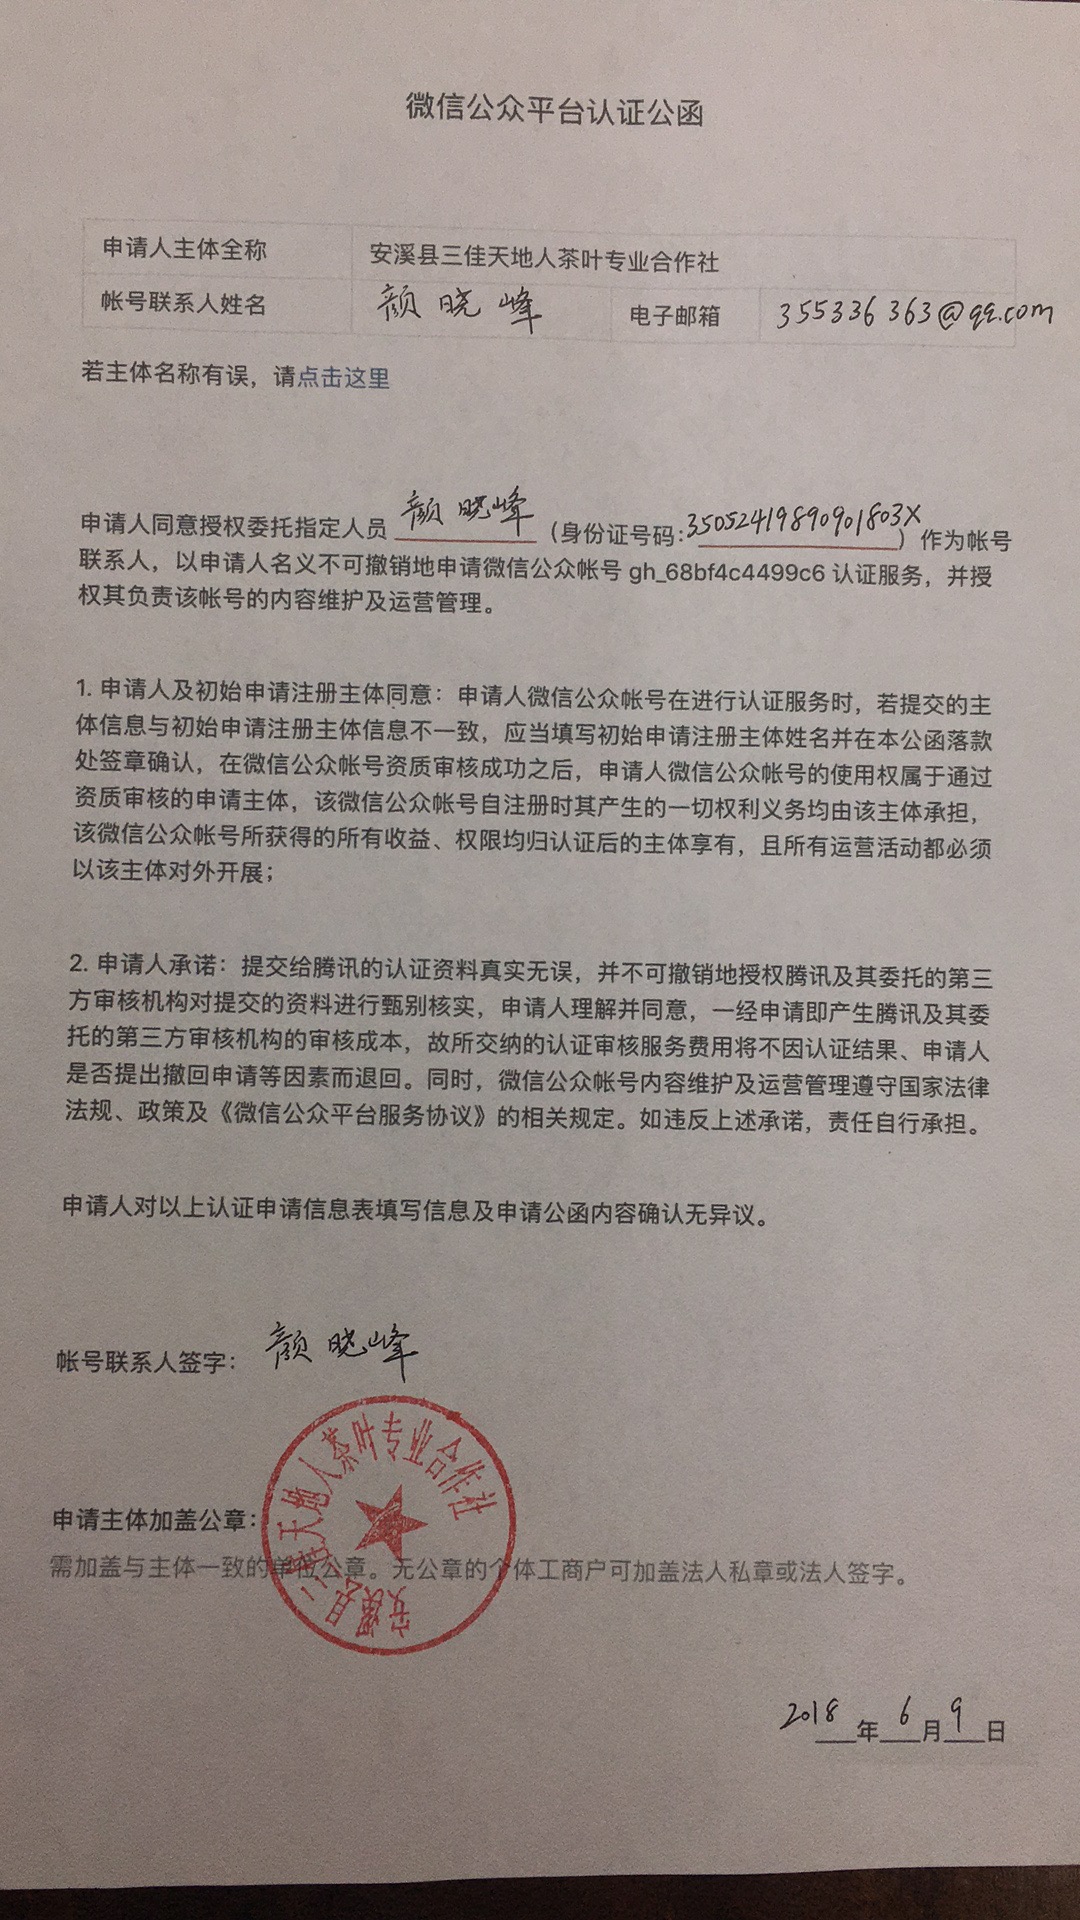 微信公众平台认证公函
申请人主体全称 安溪县三佳天地人茶叶专业合作社
帐号联系人姓名 颜晓峰 电子邮箱 355336363@qq.com
若主体名称有误，请点击这里
申请人同意授权委托指定人员 颜晓峰 （身份证号码:35052419890901803X）作为帐号
联系人，以申请人名义不可撤销地申请微信公众帐号 gh_68bf4c4499c6 认证服务，并授
权其负责该帐号的内容维护及运营管理。
1. 申请人及初始申请注册主体同意：申请人微信公众帐号在进行认证服务时，若提交的主
体信息与初始申请注册主体信息不一致，应当填写初始申请注册主体姓名并在本公函落款
处签章确认，在微信公众帐号资质审核成功之后，申请人微信公众帐号的使用权属于通过
资质审核的申请主体，该微信公众帐号自注册时其产生的一切权利义务均由该主体承担，
该微信公众帐号所获得的所有收益、权限均归认证后的主体享有，且所有运营活动都必须
以该主体对外开展；
2. 申请人承诺：提交给腾讯的认证资料真实无误，并不可撤销地授权腾讯及其委托的第三
方审核机构对提交的资料进行甄别核实，申请人理解并同意，一经申请即产生腾讯及其委
托的第三方审核机构的审核成本，故所交纳的认证审核服务费用将不因认证结果、申请人
是否提出撤回申请等因素而退回。同时，微信公众帐号内容维护及运营管理遵守国家法律
法规、政策及《微信公众平台服务协议》的相关规定。如违反上述承诺，责任自行承担。
申请人对以上认证申请信息表填写信息及申请公函内容确认无异议。
帐号联系人签字： 颜晓峰
安溪县三佳天地人茶叶专业合作社
申请主体加盖公章：
需加盖与主体一致的单位公章。无公章的个体工商户可加盖法人私章或法人签字。
2018年6月9日